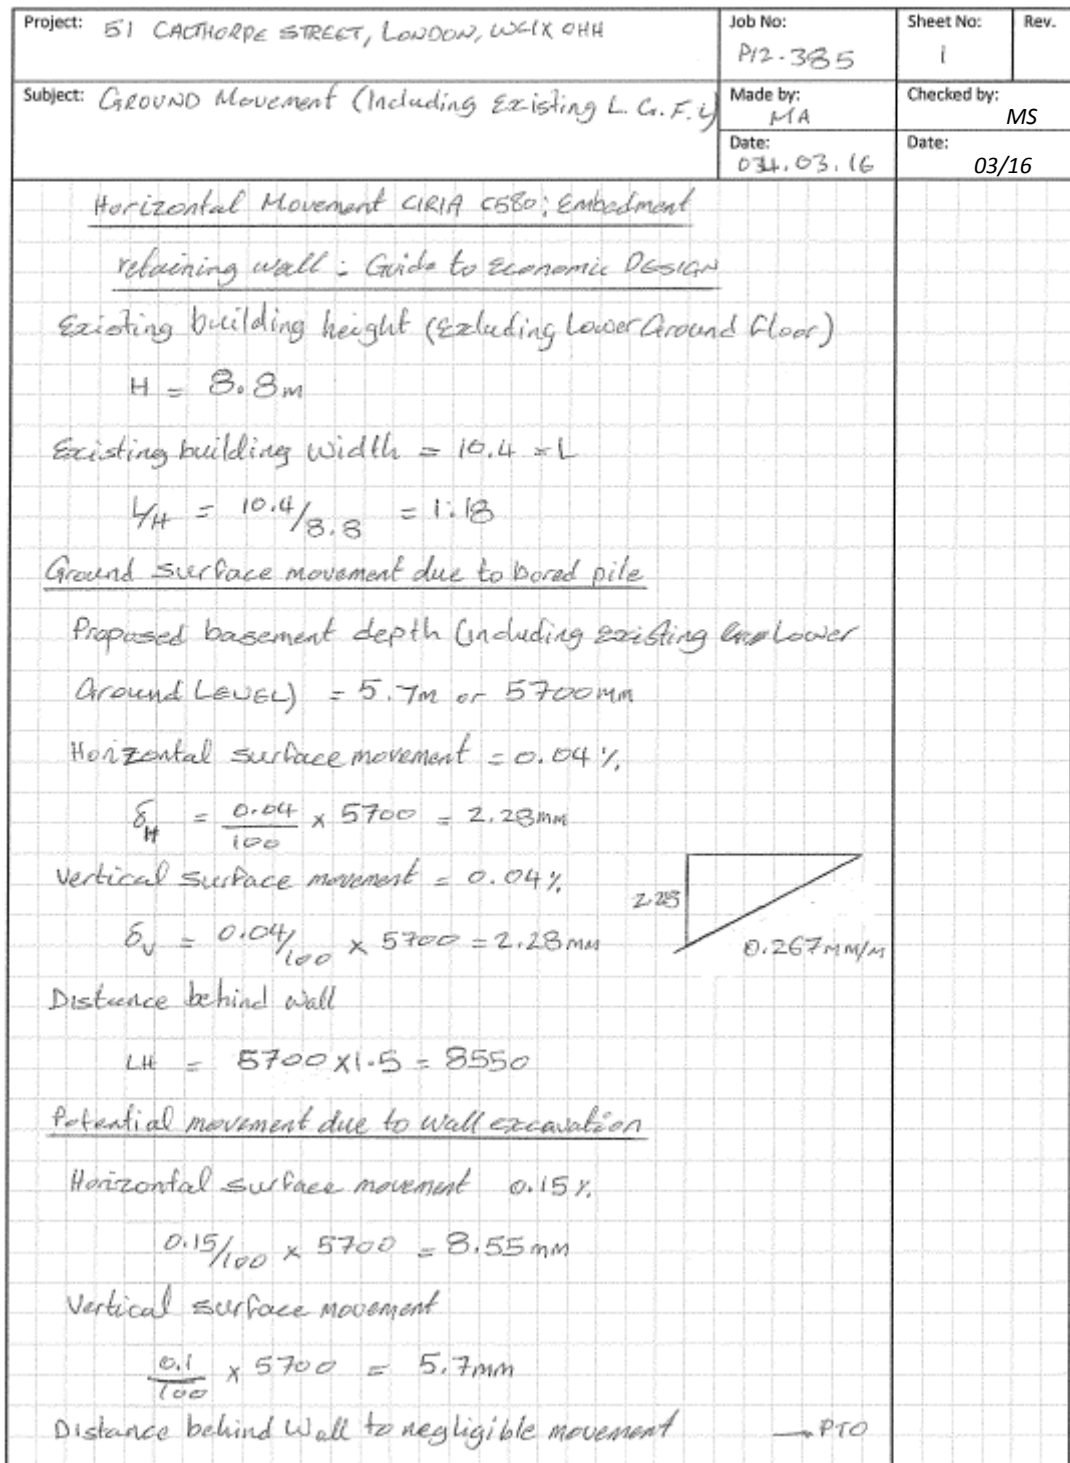 Project: 51 CALTHORPE STREET, LONDON, WC1X 0HH
Job No: P12-385
Sheet No: 1
Rev.
Subject: GROUND Movement (Including Existing L.G.F.L)
Made by: MA
Checked by: MS
Date: 04.03.16
Date: 03/16
Horizontal Movement CIRIA C580: Embedment
retaining wall: Guide to Economic DESIGN
Existing building height (Excluding Lower Ground Floor)
H = 8.8m
Existing building width = 10.4 = L
L/H = 10.4/8.8 = 1.18
Ground surface movement due to bored pile
Proposed basement depth (including existing Lower
Ground LEVEL) = 5.7m or 5700mm
Horizontal surface movement = 0.04%
δH = 0.04/100 x 5700 = 2.28mm
Vertical surface movement = 0.04%
2.28
δV = 0.04/100 x 5700 = 2.28mm
0.267MM/M
Distance behind wall
LH = 5700 x 1.5 = 8550
Potential movement due to wall excavation
Horizontal surface movement 0.15%
0.15/100 x 5700 = 8.55mm
Vertical surface movement
0.1/100 x 5700 = 5.7mm
Distance behind Wall to negligible movement → PTO